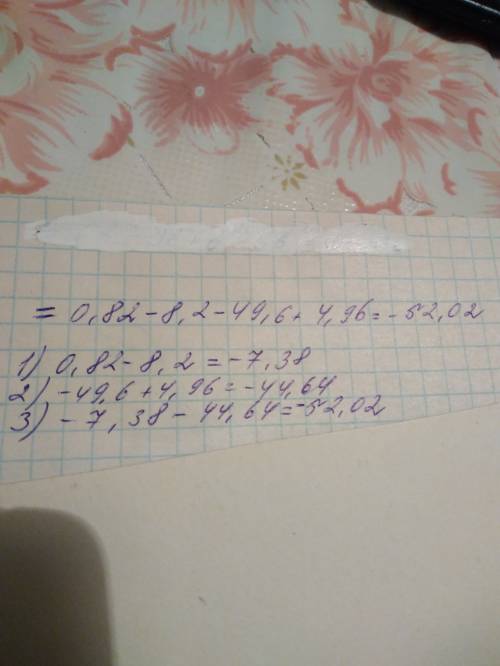 = 0,82-8,2-49,6+4,96=-52,02
1) 0,82-8,2=-7,38
2) -49,6+4,96=-44,64
3) -7,38-44,64=-52,02